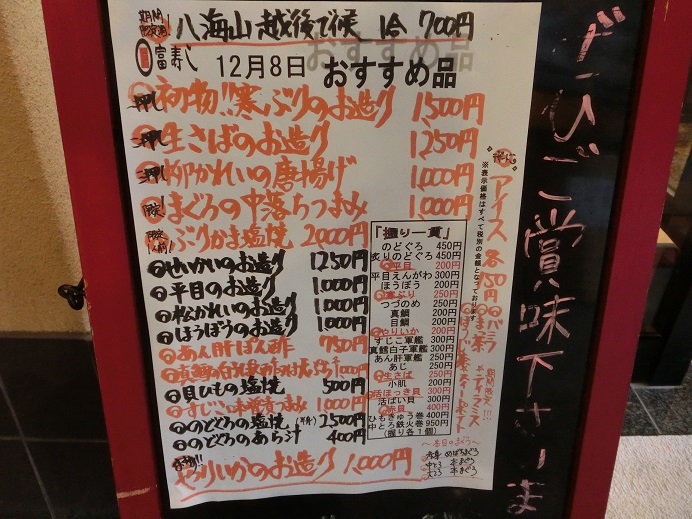 期間限定酒! 八海山 越後で候 1合 700円
富寿し 12月8日 おすすめ品
一押し 初物!! 寒ぶりのお造り 1,500円
一押し 生さばのお造り 1,250円
一押 柳かれいの唐揚げ 1,000円
限定 まぐろの中落ちつまみ 1,000円
ぶりかま塩焼 2,000円
のお造り 1250円
平目のお造り 1,000円
松かわのお造り 1,000円
ほうぼうのお造り 1,000円
あん肝ぽん酢 750円
1,000円
貝ひもの塩焼 500円
すじこ味噌漬つまみ 1,000円
のどぐろの塩焼 (半身) 2500円
のどぐろのあら汁 400円
やりいかのお造り 1,000円
「握り一貫」
のどぐろ 450円
炙りのどぐろ 450円
平目 200円
平目えんがわ 300円
ほうぼう 200円
寒ぶり 250円
つづのめ 250円
真鯛 200円
目鯛 200円
やりいか 200円
すじこ軍艦 300円
真鱈白子軍艦 300円
あん肝軍艦 250円
あじ 250円
生さば 250円
小肌 200円
活ほっき貝 300円
活ばい貝 300円
赤貝 400円
ひもきゅう巻 400円
中とろ鉄火巻 950円
(握り各1個)
～本日のまぐろ～
赤身 めばちまぐろ
中とろ 本まぐろ
大とろ 本まぐろ
※表示価格はすべて税別の金額となっております
アイス 各150円
バニラ
抹茶
期間限定!!!
ティラミス
ぜひご賞味下さいま